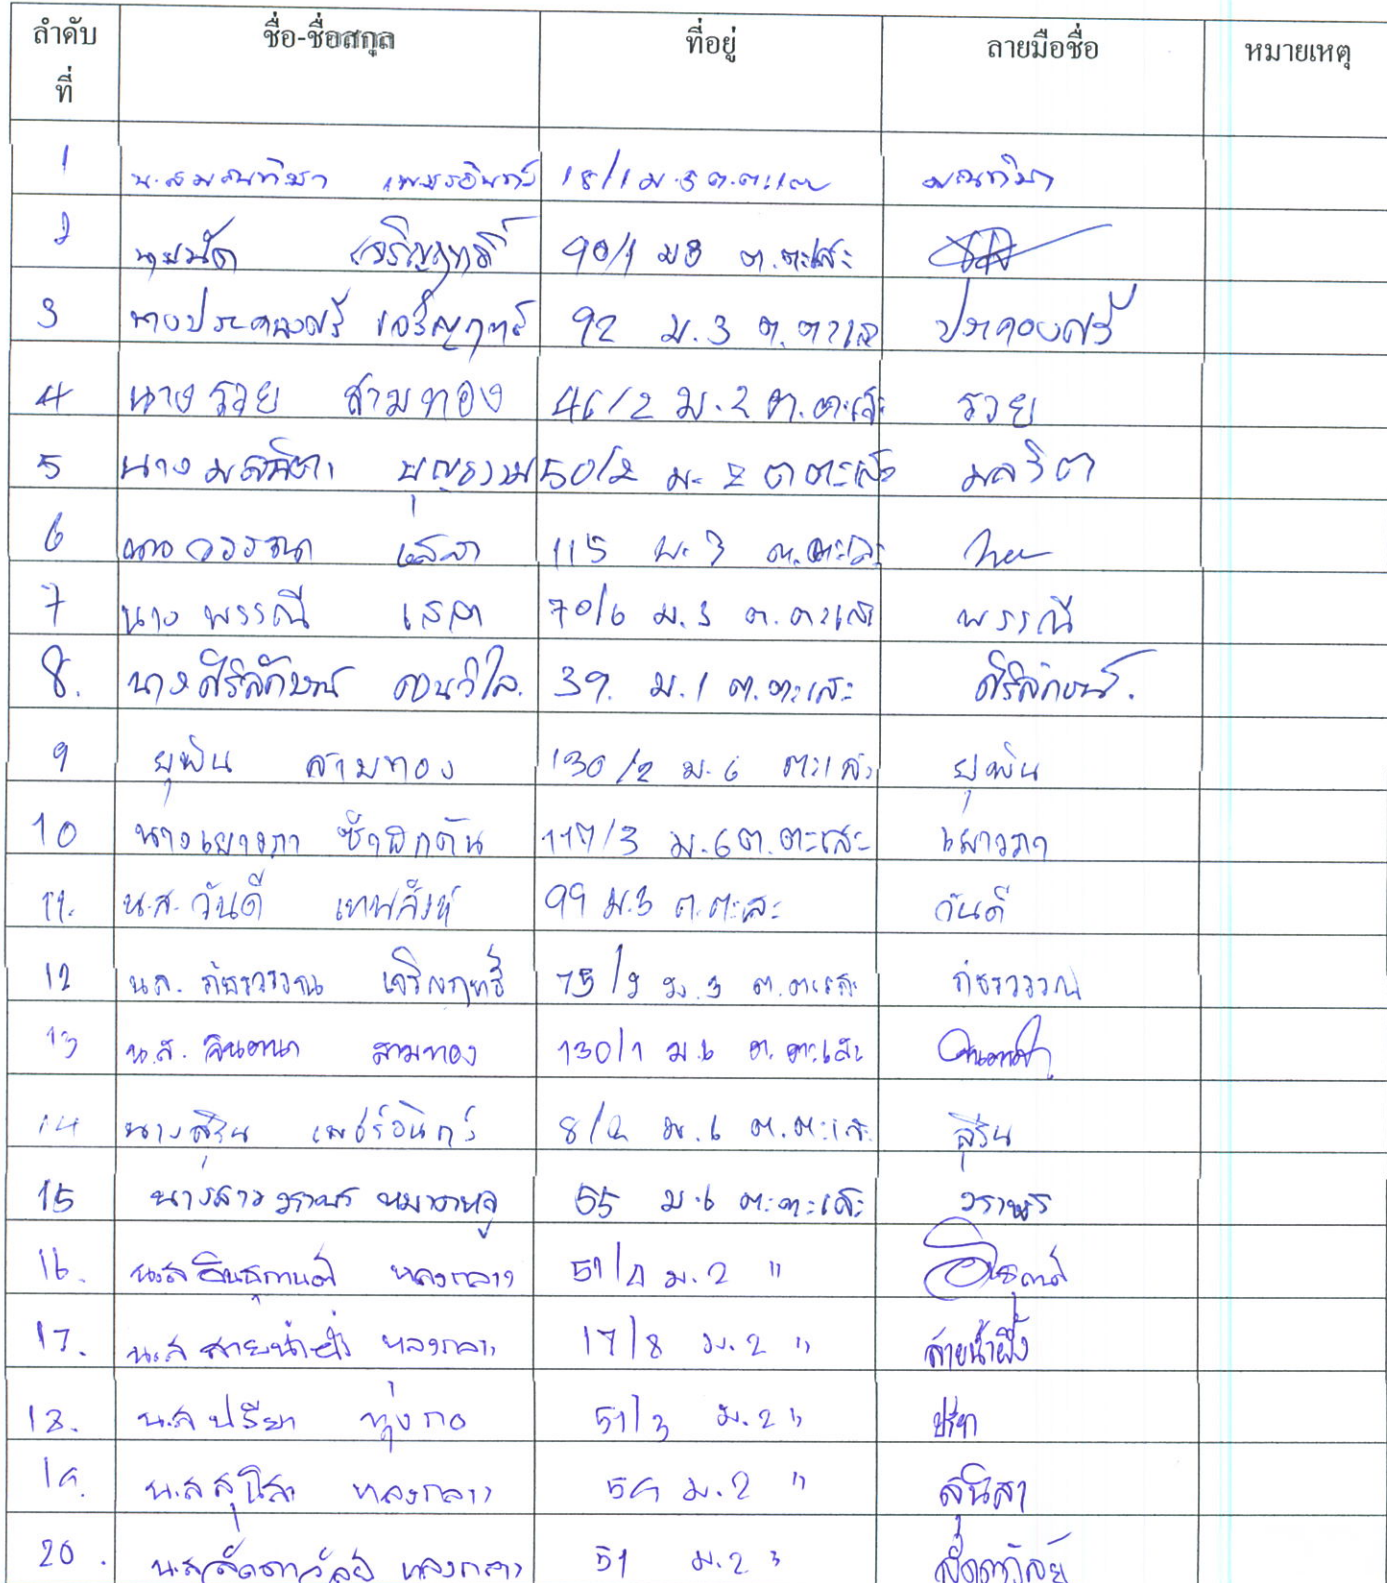 ลำดับที่ ชื่อ-ชื่อสกุล ที่อยู่ ลายมือชื่อ หมายเหตุ
1 น.ส มณฑิมา เพชรอินทร์ 18/1 ม.3 ต.ตะเสะ มณฑิมา
2 นายนัด เจริญฤทธิ์ 90/1 ม3 ต.ตะเสะ
3 นางประคองศรี เจริญฤทธิ์ 92 ม.3 ต.ตะเสะ ประคองศรี
4 นาง รวย สามทอง 46/2 ม.2 ต.ตะเสะ รวย
5 นาง บุญธรรม 50/2 ม. 2 ต ตะเสะ
6 นาง วรรณา เสลา 115 ม. 3 ต.ตะเสะ
7 นาง พรรณี เสลา 70/6 ม.3 ต.ตะเสะ พรรณี
8. นางศิริลักษณ์ ควนวิไล. 39. ม.1 ต.ตะเสะ ศิริลักษณ์.
9 ยุพิน สามทอง 130/2 ม.6 ตะเสะ ยุพิน
10 นางเยาวภา ซำฮิกดัน 117/3 ม.6 ต.ตะเสะ เยาวภา
11. น.ส. วันดี เทพสิงห์ 99 ม.3 ต.ตะเสะ วันดี
12 น.ส. ภัทรวรรณ เจริญฤทธิ์ 75/2 ม.3 ต.ตะเสะ ภัทรวรรณ
13 น.ส. จินตนา สามทอง 130/1 ม.6 ต.ตะเสะ
14 นางสุริน เพชรอินทร์ 8/2 ม.6 ต.ตะเสะ สุริน
15 นางสาว วราพร หมาดหลู 55 ม.6 ต.ตะเสะ วราพร
16. น.ส อินธุกานต์ หลงกลาง 51/4 ม.2 "
17. น.ส สายน้ำผึ้ง หลงกลาง 17/8 ม.2 " สายน้ำผึ้ง
18. น.ส ปรียา ทุ่งกอ 51/3 ม.2 " ปรียา
19. น.ส สุนิสา หลงกลาง ม.2 " สุนิสา
20. น.ส ลัดดาวัลย์ หลงกลาง 51 ม.2 " ลัดดาวัลย์